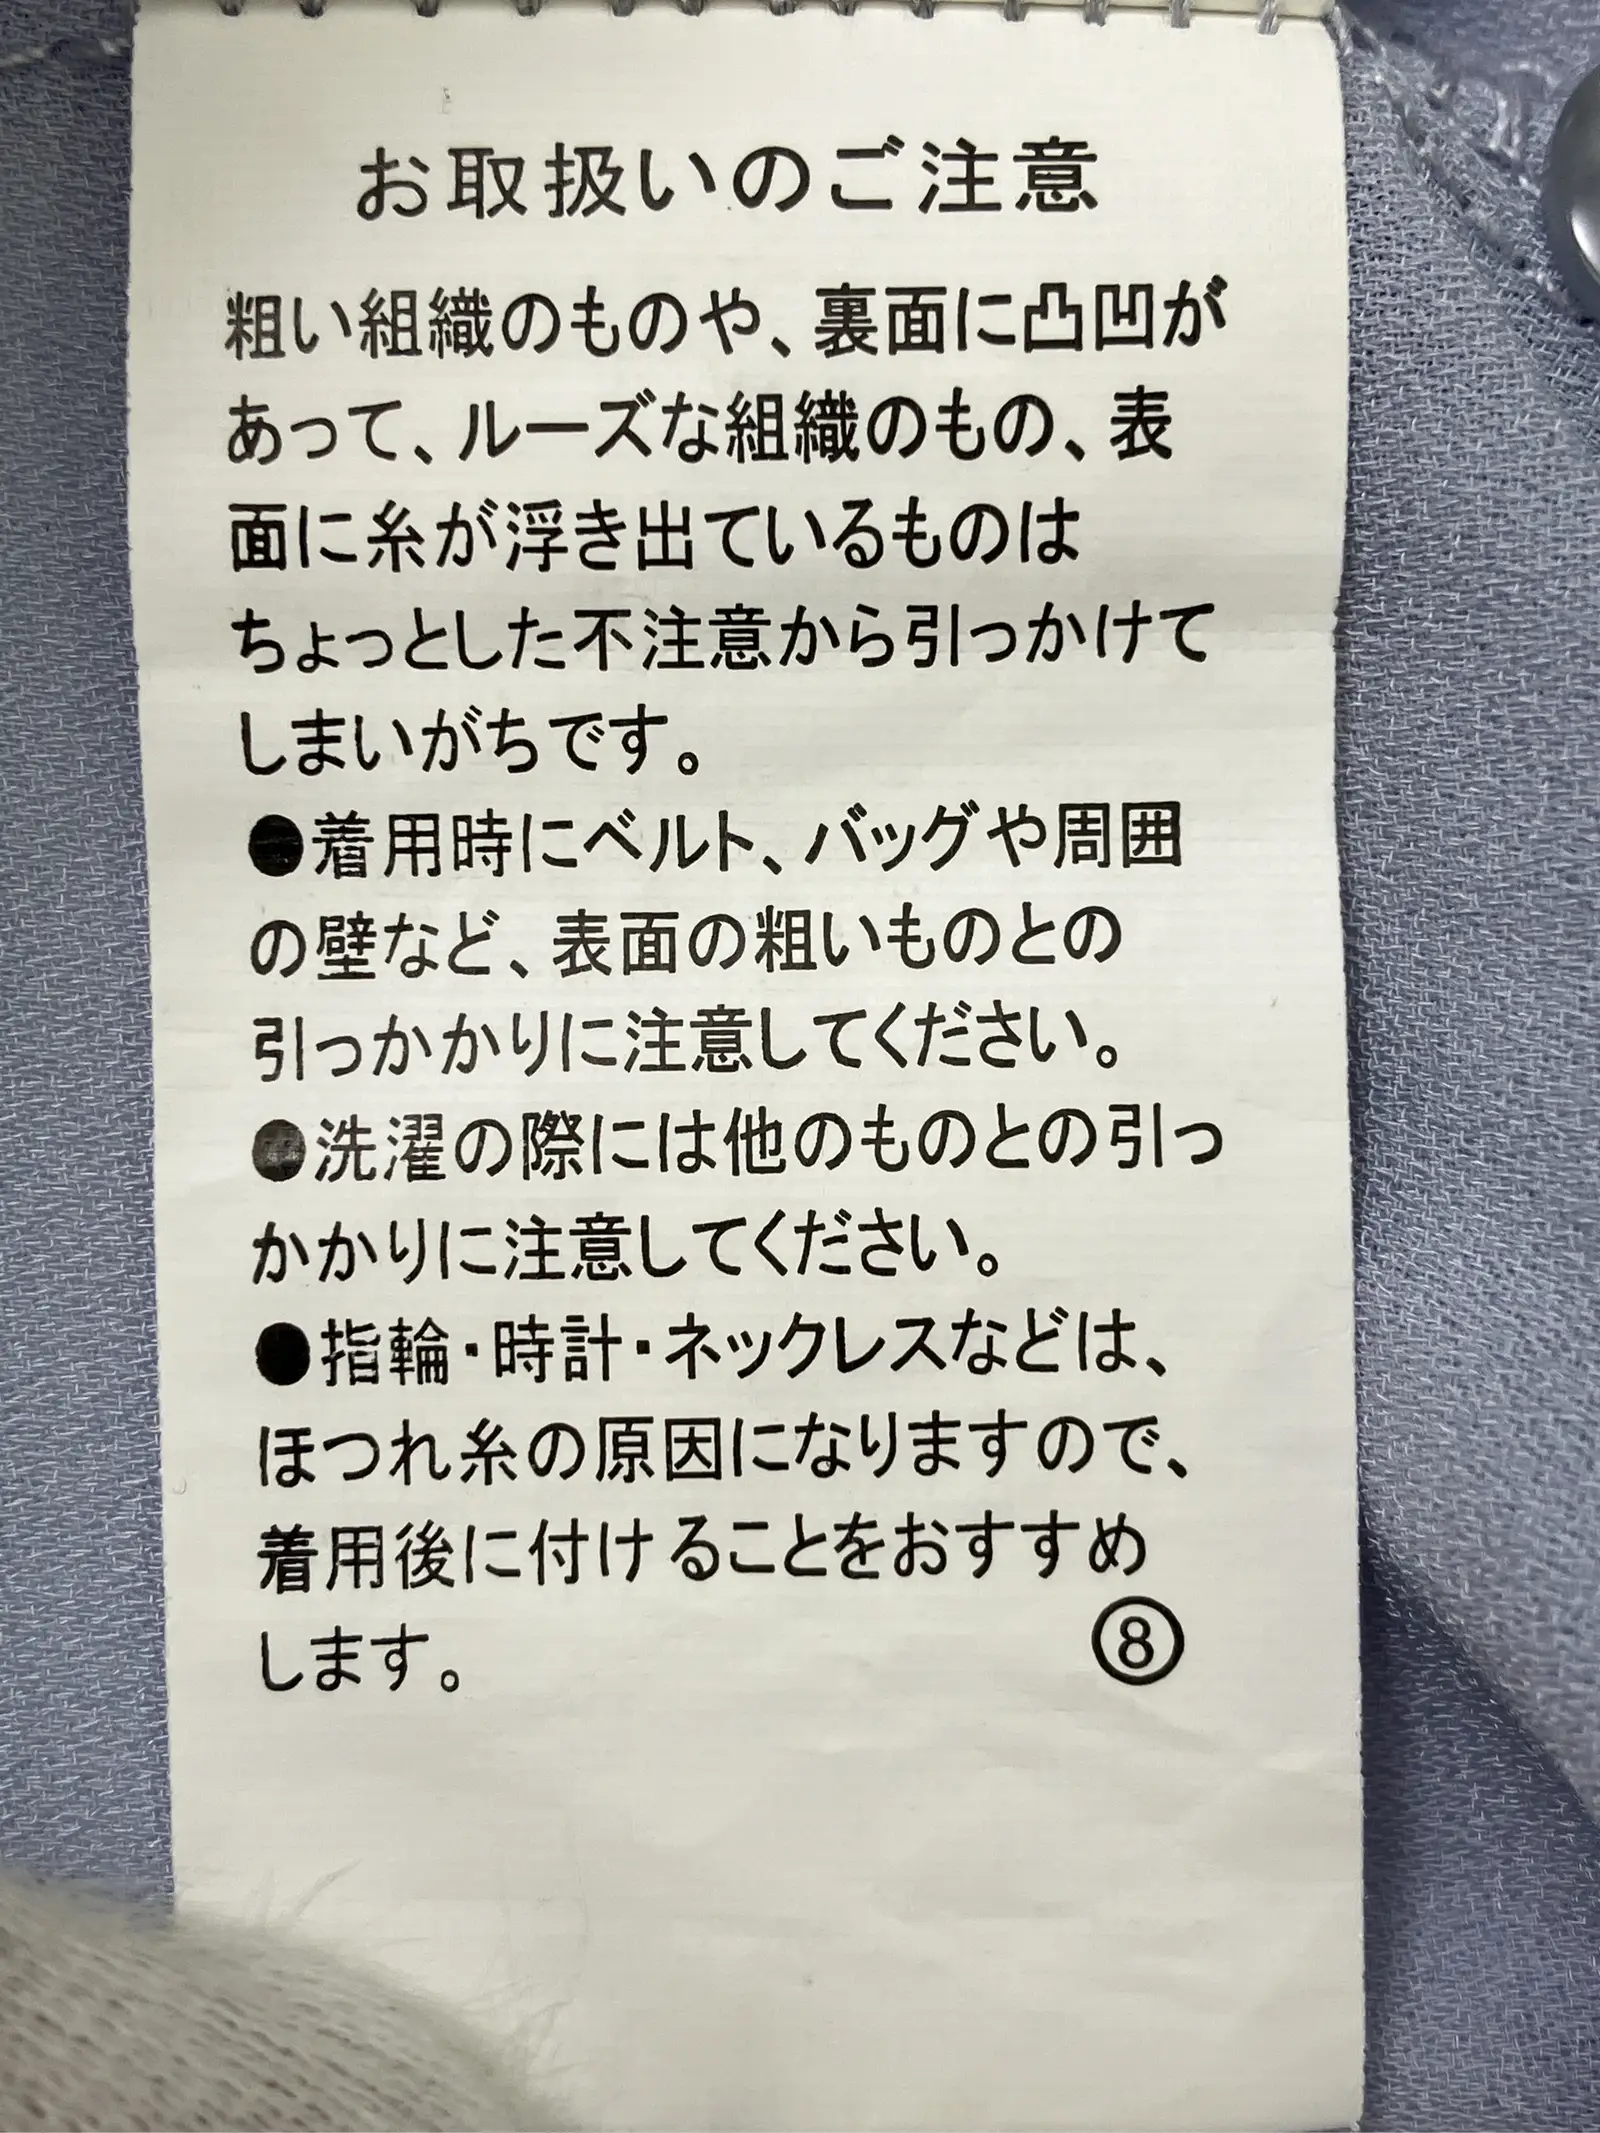 お取扱いのご注意
粗い組織のものや、裏面に凸凹が
あって、ルーズな組織のもの、表
面に糸が浮き出ているものは
ちょっとした不注意から引っかけて
しまいがちです。
●着用時にベルト、バッグや周囲
の壁など、表面の粗いものとの
引っかかりに注意してください。
●洗濯の際には他のものとの引っ
かかりに注意してください。
●指輪・時計・ネックレスなどは、
ほつれ糸の原因になりますので、
着用後に付けることをおすすめ
します。 ⑧